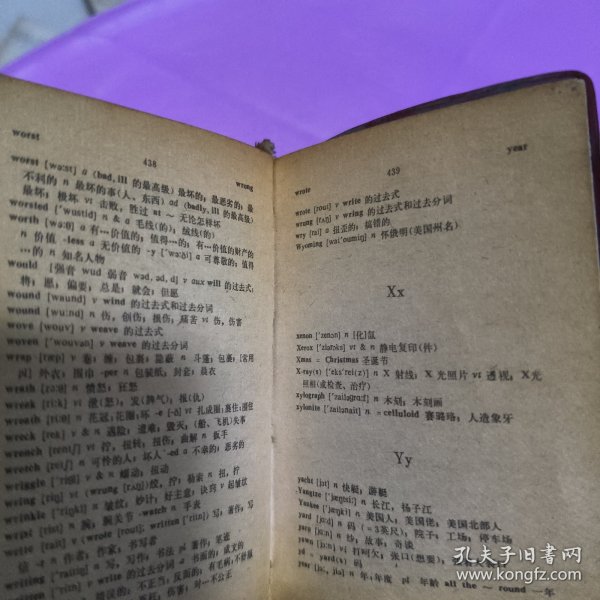 worst
438
wrong
worst [wə:st] a (bad, ill 的最高级) 最坏的；最恶劣的；最
不利的 n 最坏的事(人、东西) ad (badly, ill 的最高级)
最坏；极坏 vt 击败，胜过 at ～ 无论怎样坏
worsted ['wustid] n & a 毛线(的)；绒线(的)
worth [wə:θ] a 有…价值的；值得…的；有…价值的财产的
n 价值 -less a 无价值的 -y ['wə:ði] a 可尊敬的；值得
…的 n 知名人物
would [强音 wud 弱音 wəd, əd, d] v aux will 的过去式；
将；愿；偏要；总是；就会；但愿
wound [waund] v wind 的过去式和过去分词
wound [wu:nd] n 伤，创伤；损伤；痛苦 vt 伤，伤害
wove [wouv] v weave 的过去式
woven ['wouvən] v weave 的过去分词
wrap [ræp] v 卷；缠；包裹；隐蔽 n 斗篷；包裹；[常用
pl] 外衣；围巾 -per n 包装纸；封套；晨衣
wrath [rɔ:θ] n 愤怒；狂怒
wreak [ri:k] vt 泄；发(脾气)，报(仇)
wreath [ri:θ] n 花冠；花圈；
wreck [rek] n & v 遇险；遭难；毁灭；(船、飞机)失事
wrench [rentʃ] vt 拧，扭转，扭伤；曲解 n 扳手
wretch [retʃ] n 可怜的人；坏人 -ed a 不幸的；恶劣的
wriggle ['rigl] v & n 蠕动；扭动
wring [riŋ] vt (wrung [rʌŋ]) 绞，拧；勒索 n 扭，拧
wrinkle ['riŋkl] n 皱纹；妙计；好主意；诀窍 v 起皱纹
wrist [rist] n 腕；腕关节 -watch n 手表
write [rait] v (wrote [rout]; written ['ritn]) 写；著作；写
信 -r n 作者；作家；书写者
writing ['raitiŋ] n 写，写作，书法 pl 著作；笔迹
written ['ritn] v write 的过去分词 a 书面的；成文的
wrote
439
year
wrote [rout] v write 的过去式
wrung [rʌŋ] v wring 的过去式和过去分词
wry [rai] a 扭歪的；搞错的
Wyoming [wai'oumiŋ] n 怀俄明(美国州名)
Xx
xenon ['zenɔn] n [化]氙
Xerox ['ziərɔks] vt & n 静电复印(件)
Xmas = Christmas 圣诞节
X-ray(s) ['eks'rei(z)] n X 射线；X 光照片 vt 透视；X光
照相(或检查、治疗)
xylograph ['zailəgra:f] n 木刻；木刻画
xylonite ['zailənait] n = celluloid 赛璐珞；人造象牙
Yy
yacht [jɔt] n 快艇；游艇
Yangtze ['jæŋtsi:] n 长江，扬子江
Yankee ['jæŋki] n 美国人；美国佬；美国北部人
yard [jɑ:d] n 码 (=3英尺)；院子；工场；停车场
yarn [jɑ:n] n 纱；故事，奇谈
yawn [jɔ:n] vi 打呵欠；张口(想要)
yd = yard(s) 码
year [jə:, jiə] n 年，年度 pl 年龄 all the ～ round 一年
孔夫子旧书网
www.kongfz.com